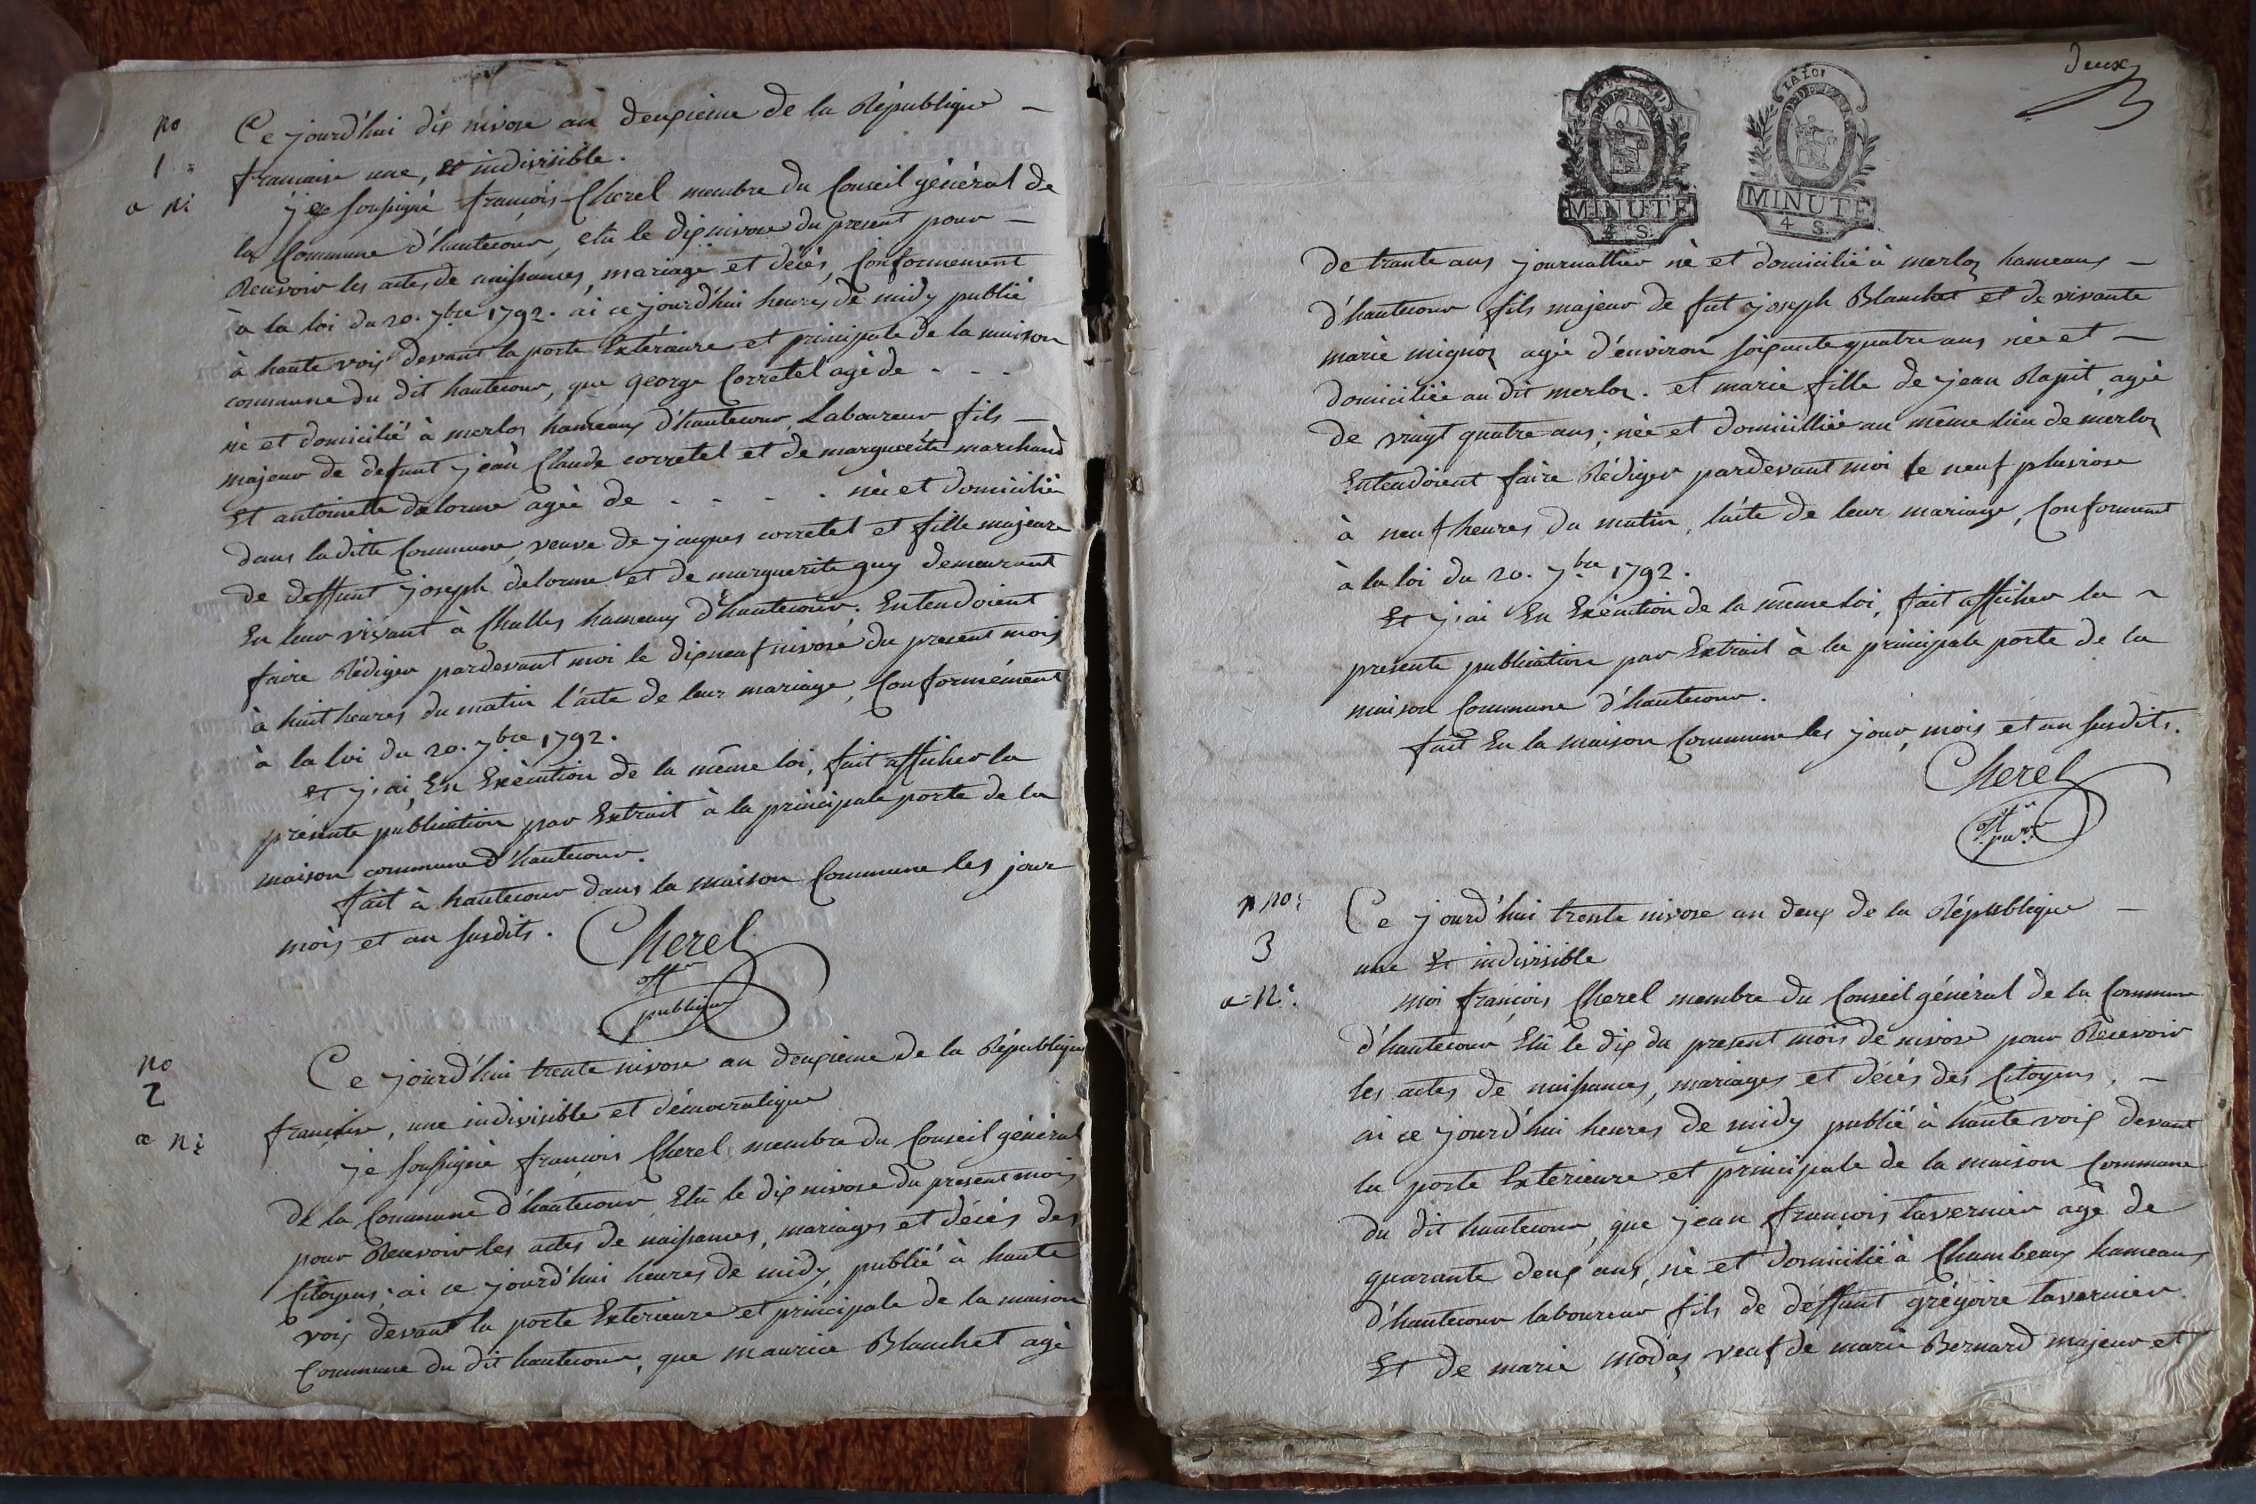 no
1
a ni
Ce jourd'hui dix nivose an deuxieme de la République
francaise une, et indivisible.
je soussigné françois Cherel membre du Conseil général de
la Commune d'hautecour, élû le dix nivose du present pour
Recevoir les actes de naissances, mariage et décés, Conformement
à la loi du 20. 7bre 1792. ai ce jourd'hui heures de midy publié
à haute voix devant la porte Extérieure et principale de la maison
commune du dit hautecour, que george Corretel agé de - - -
né et domicilié à merloz hameaux d'hautecour, Laboureur fils
majeur de defunt jean Claude corretel et de marguerite marchand
Et antoinette delorme agée de - - - - née et domiciliée
dans la ditte Commune, veuve de jaques corretel et fille majeure
de deffunt joseph delorme et de marguerite guy demeurant
En leur vivant à Challes hameaux d'hautecour. Entendoient
faire Rédiger pardevant moi le dix neuf nivose du present mois
à huit heures du matin l'acte de leur mariage, Conformément
à la loi du 20. 7bre 1792.
et j'ai, En Exécution de la même loi, fait afficher la
présente publication par Extrait à la principale porte de la
maison commune d'hautecour.
fait à hautecour dans la maison Commune les jour
mois et an susdits.
Cherel
offr
publique
no
2
a ni
Ce jourd'hui trente nivose an deuxieme de la République
française, une indivisible et démocratique
je soussigné françois Cherel membre du Conseil général
de la Commune d'hautecour Elû le dix nivose du present mois
pour Recevoir les actes de naissances, mariages et décés des
Citoyens, ai ce jourd'hui heures de midy, publié à haute
voix devant la porte Exterieure et principale de la maison
Commune du dit hautecour, que maurice Blanchet agé
deux
LA LOI
MINUTE
4 S
MINUTE
4 S
de trante ans journallier né et domicilié à merloz hameaux
d'hautecour fils majeur de fut joseph Blanchet et de vivante
marie mignoz agée d'énviron soixante quatre ans née et
domiciliée au dit merloz. et marie fille de jean Rapit, agée
de vingt quatre ans, née et domicilliée au même lieu de merloz
Entendoient faire Rédiger pardevant moi le neuf pluviose
à neuf heures du matin, l'acte de leur mariage, Conformemt
à la loi du 20. 7bre 1792.
Et j'ai En Exécution de la même loi, fait afficher la
presente publication par Extrait à la principale porte de la
maison Commune d'hautecour.
fait En la maison Commune les jour, mois et an susdits.
Cherel
off
no
3
a ni
Ce jourd'hui trente nivose an deux de la République
une Et indivisible
moi françois Cherel membre du Conseil général de la Commune
d'hautecour Elû le dix du present mois de nivose pour Recevoir
les actes de naissances, mariages et décés des Citoyens,
ai ce jourd'hui heures de midy publié à haute voix devant
la porte Exterieure et principale de la maison Commune
du dit hautecour, que jean françois tavernier agé de
quarante deux ans, né et domicilié à Chambeaux hameaux
d'hautecour laboureur fils de déffunt grégoire tavernier
Et de marie modas veuf de marie Bernard majeur et